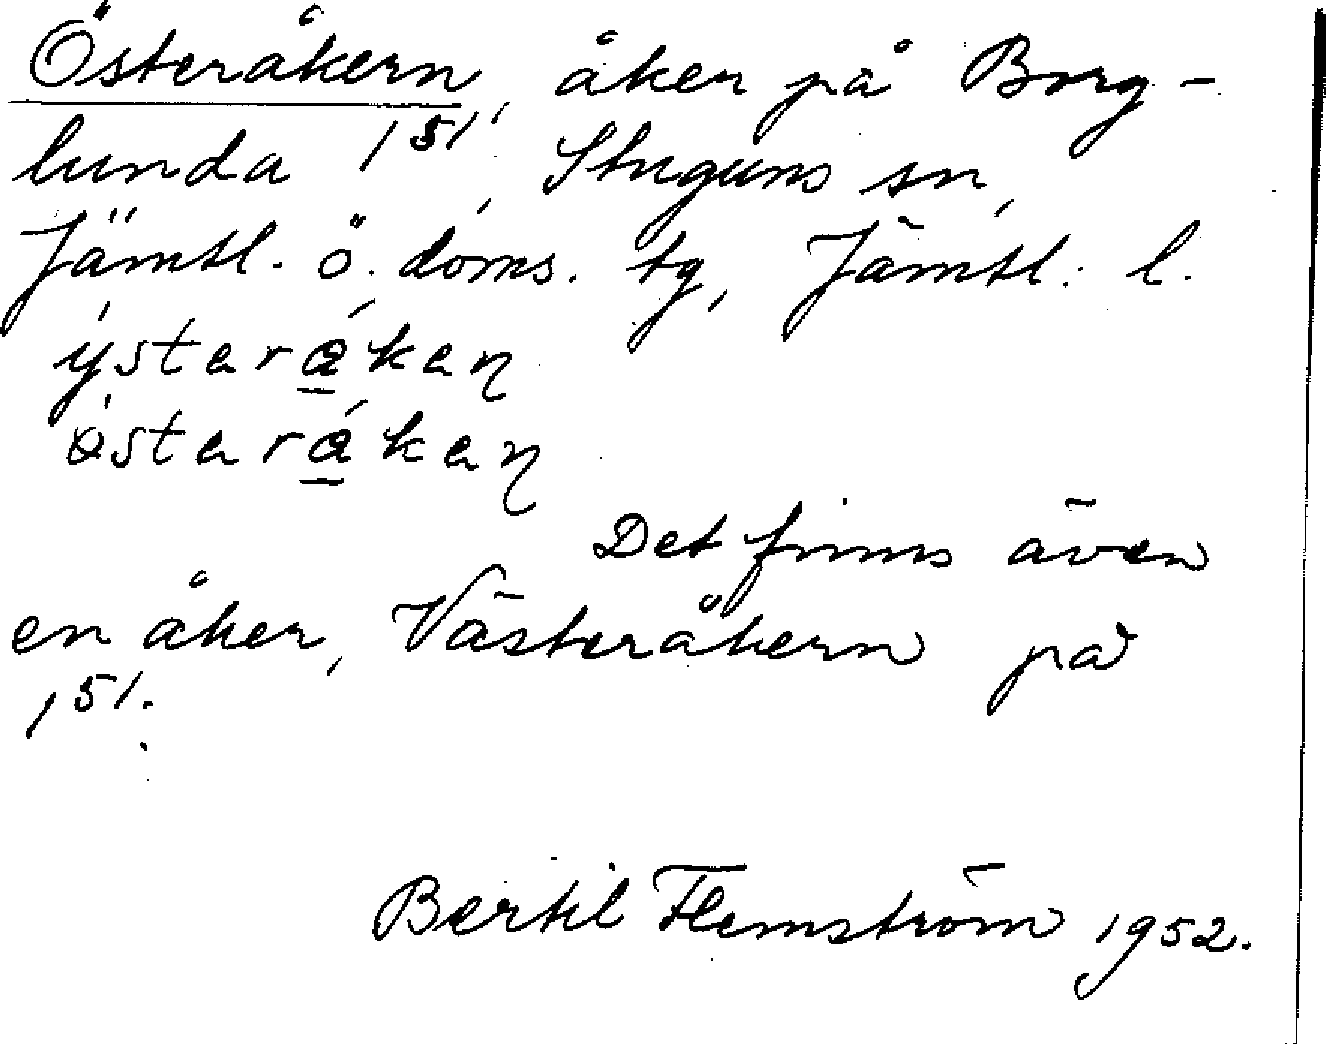 Österåkern, åker på Borg-
lunda 1⁵¹, Stuguns sn,
Jämtl. ö. doms. tg, Jämtl. l.
ýstaråkaɳ
ǿstaråkaɳ
Det finns även
en åker, Västeråkern på
1⁵¹.
Bertil Flemström 1952.